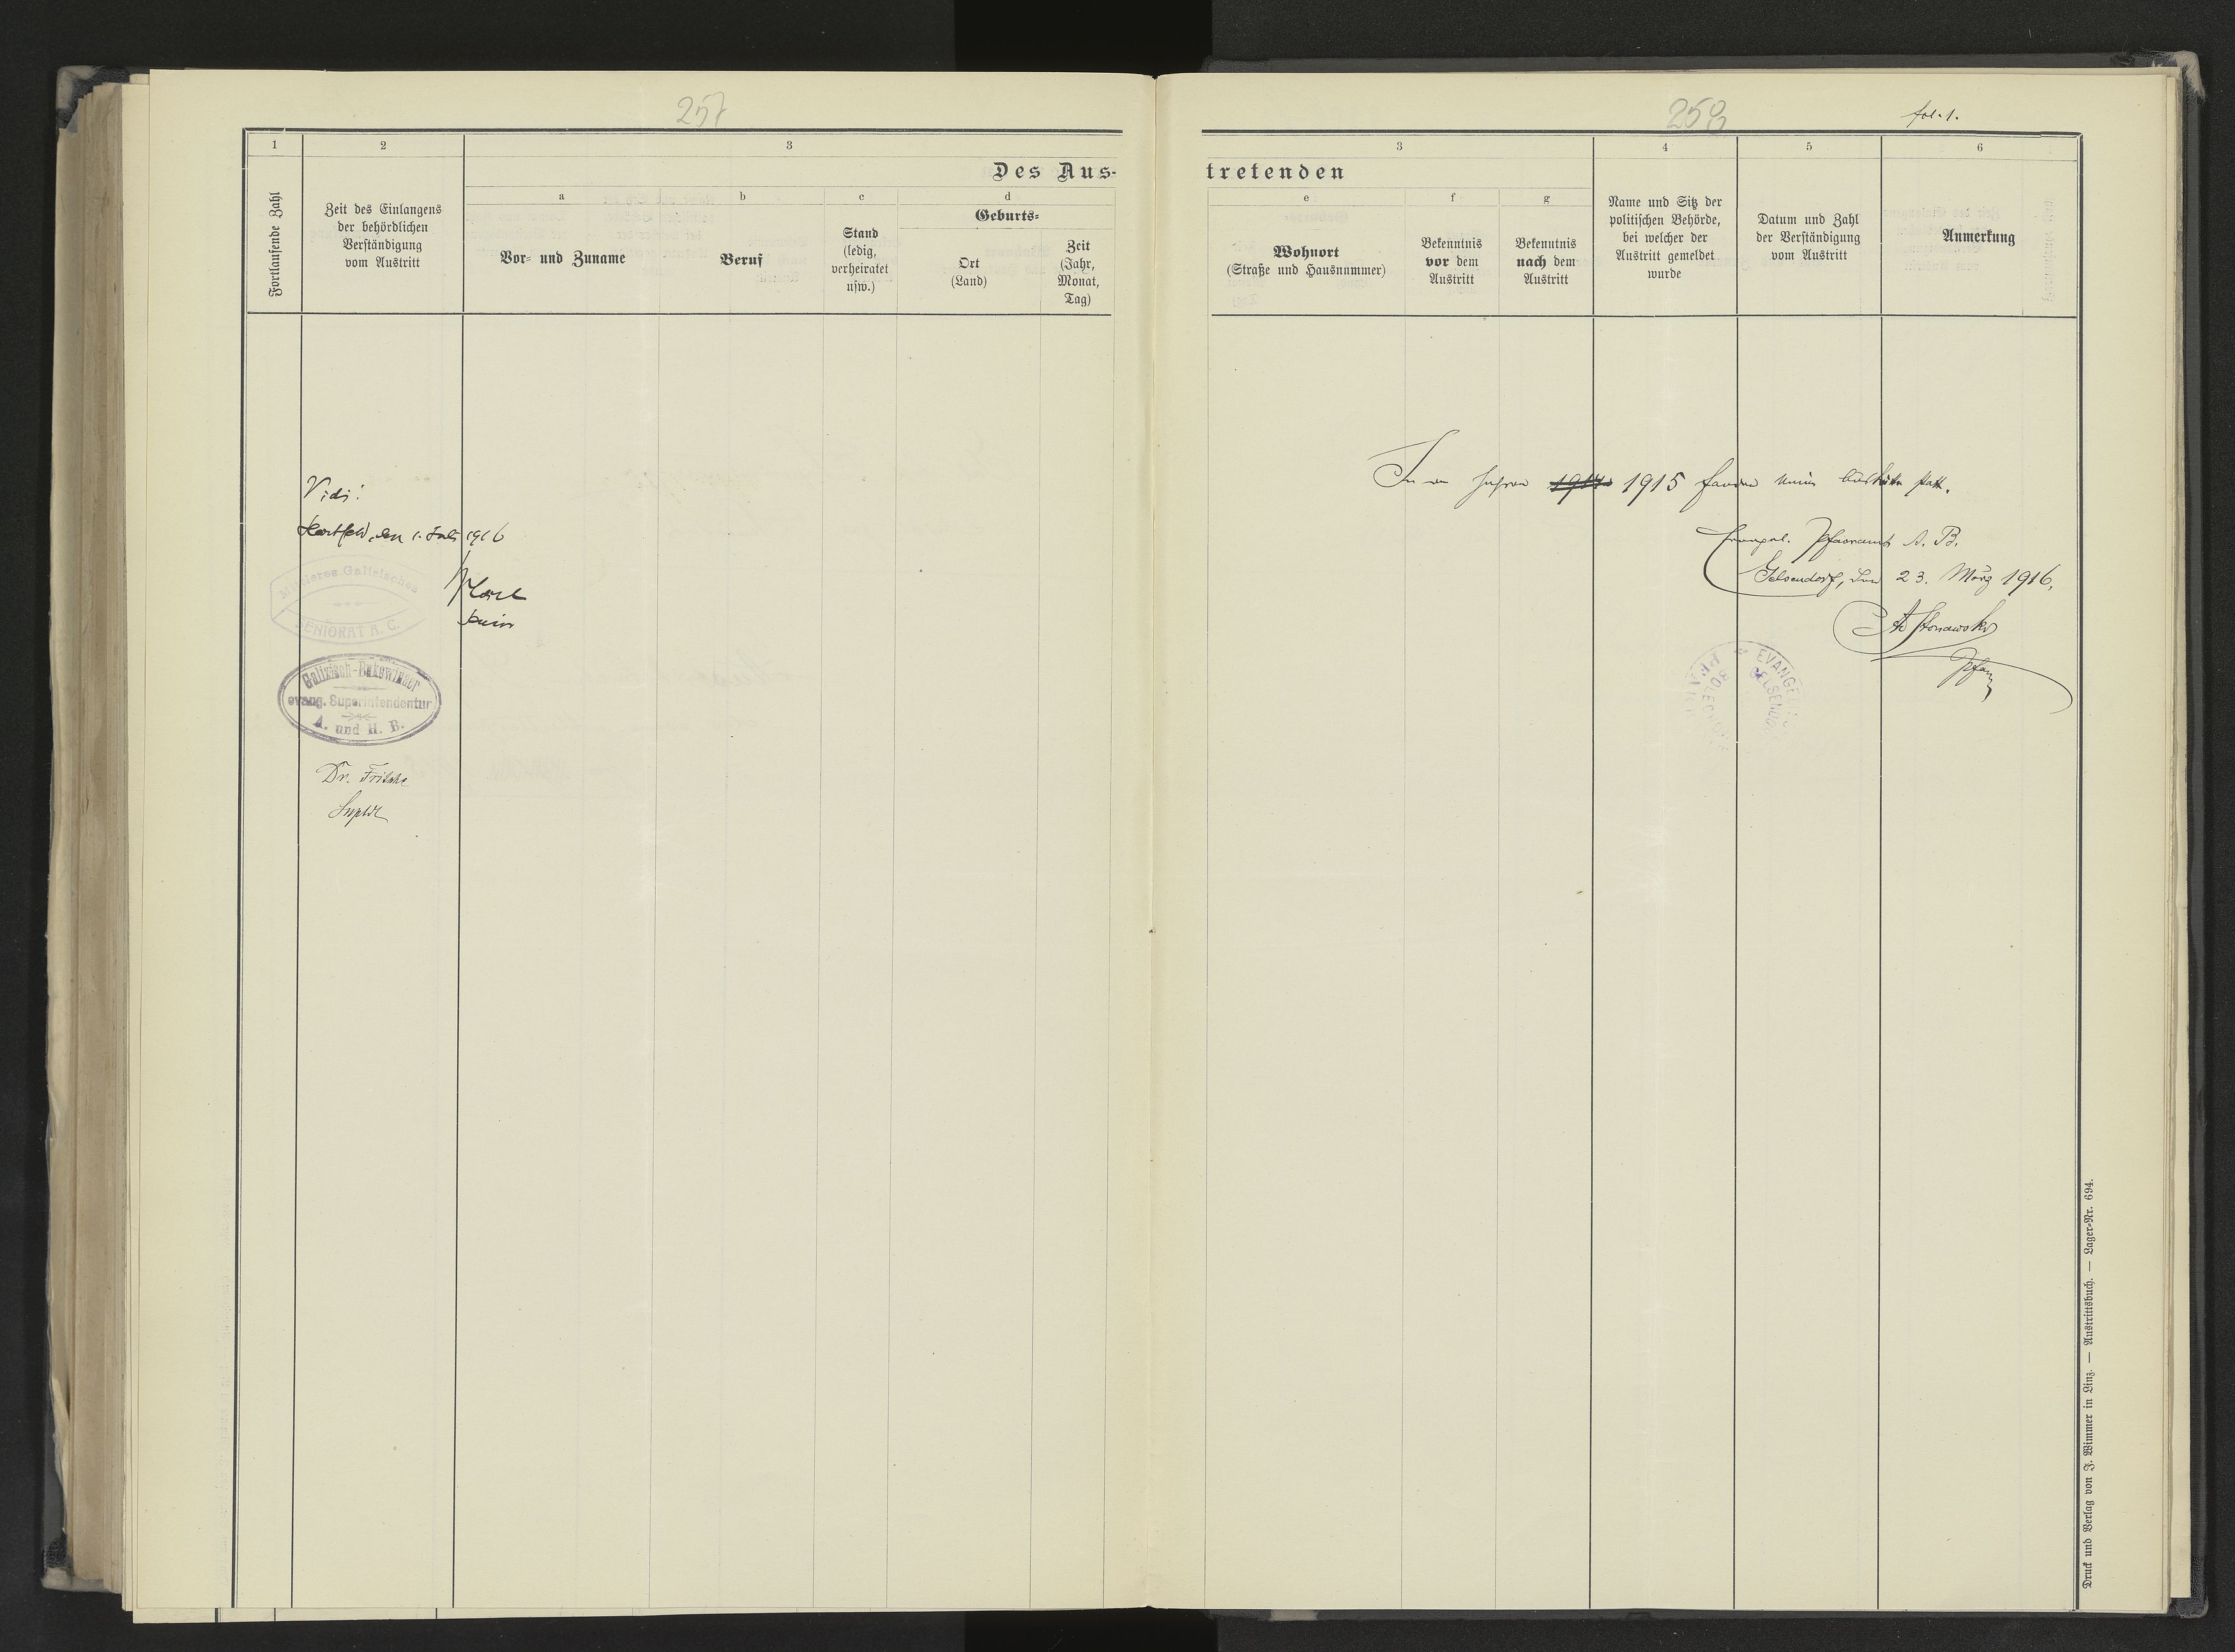 257
1
2
3
Des Aus-
Fortlaufende Zahl
Zeit des Einlangens
der behördlichen
Verständigung
vom Austritt
a
b
c
d
Vor- und Zuname
Beruf
Stand
(ledig,
verheiratet
usw.)
Geburts-
Ort
(Land)
Zeit
(Jahr,
Monat,
Tag)
Vidi!
den 1. Juli 1916
Mittleres Galizisches
SENIORAT A. C.
Galizisch-Bukowinaer
evang. Superintendentur
A. und H. B.
Dr. Fritsche
258
fol. 1.
3
4
5
6
tretenden
e
f
g
Wohnort
(Straße und Hausnummer)
Bekenntnis
vor dem
Austritt
Bekenntnis
nach dem
Austritt
Name und Sitz der
politischen Behörde,
bei welcher der
Austritt gemeldet
wurde
Datum und Zahl
der Verständigung
vom Austritt
Anmerkung
1914 1915 fanden keine Austritte statt.
Evangel. Pfarramt A. B.
Gelsendorf, den 23. März 1916.
Pfarrer
Druck und Verlag von F. Wimmer in Linz. — Austrittsbuch. — Lager-Nr. 694.